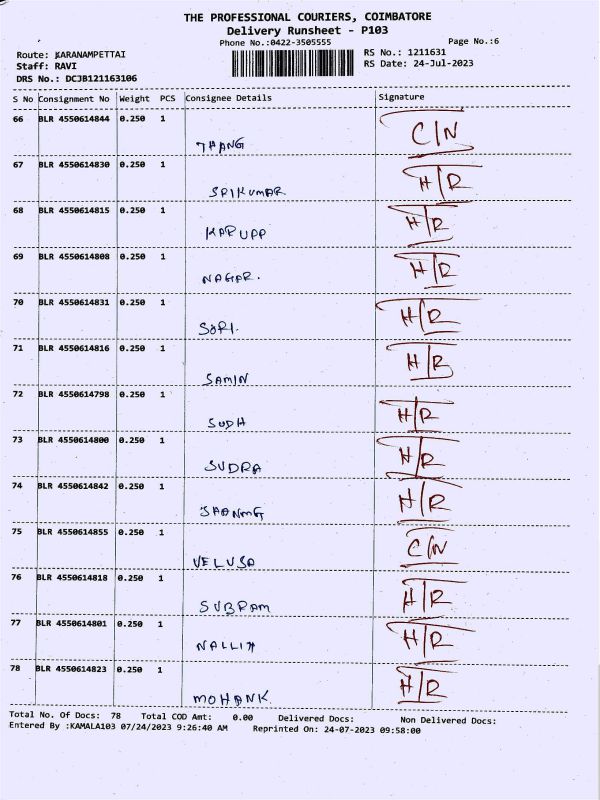 THE PROFESSIONAL COURIERS, COIMBATORE
Delivery Runsheet - P103
Phone No.:0422-3505555 Page No.:6
Route: KARANAMPETTAI RS No.: 1211631
Staff: RAVI RS Date: 24-Jul-2023
DRS No.: DCJB121163106
S No Consignment No Weight PCS Consignee Details Signature
66 BLR 4550614844 0.250 1 C/N
THANG
67 BLR 4550614830 0.250 1 H/R
SRIKUMAR
68 BLR 4550614815 0.250 1 H/R
KARUPP
69 BLR 4550614808 0.250 1 H/R
NAGAR.
70 BLR 4550614831 0.250 1 H/R
SORI.
71 BLR 4550614816 0.250 1 H/R
SAMIN
72 BLR 4550614798 0.250 1 H/R
SUDH
73 BLR 4550614800 0.250 1 H/R
SUDRA
74 BLR 4550614842 0.250 1 H/R
75 BLR 4550614855 0.250 1 C/N
VELUSA
76 BLR 4550614818 0.250 1 H/R
SUBRAM
77 BLR 4550614801 0.250 1 H/R
NALLIA
78 BLR 4550614823 0.250 1 H/R
MOHANK.
Total No. Of Docs: 78 Total COD Amt: 0.00 Delivered Docs: Non Delivered Docs:
Entered By :KAMALA103 07/24/2023 9:26:40 AM Reprinted On: 24-07-2023 09:58:00